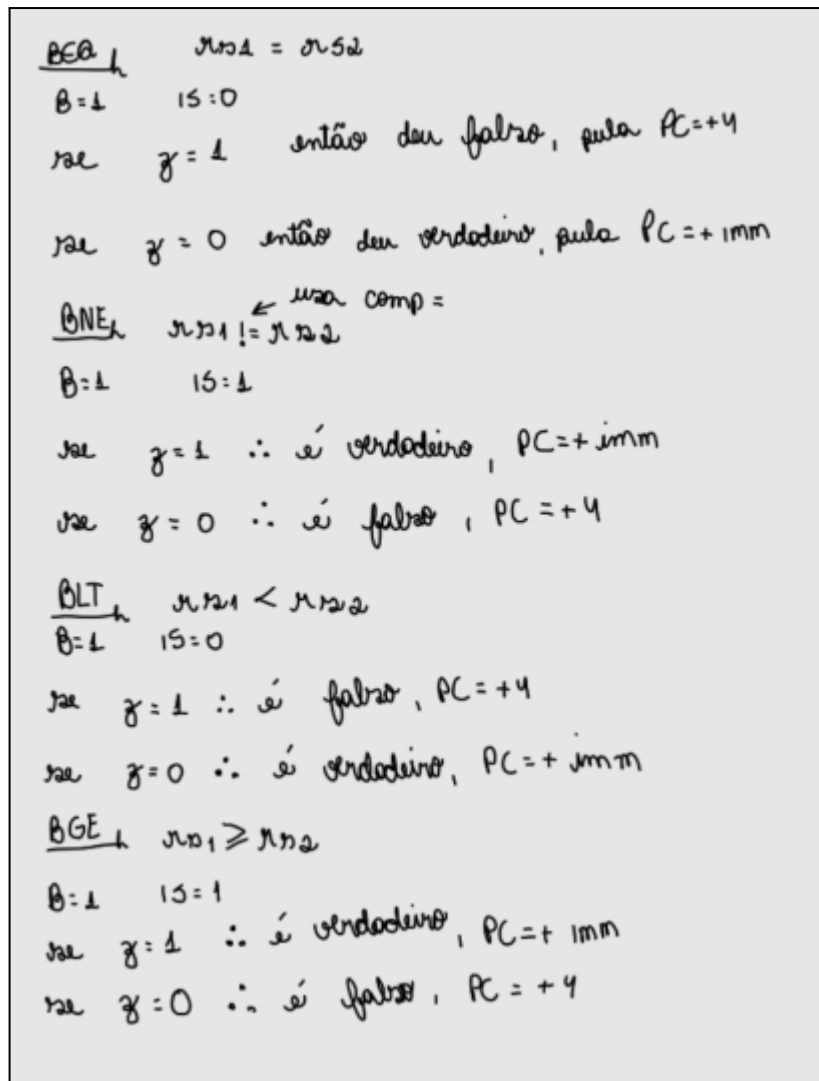 BEQ rs1 = rs2
B=1 IS:0
se z=1 então deu falso, pula PC=+4
se z=0 então deu verdadeiro, pula PC=+imm
← usa comp =
BNE rs1 != rs2
B=1 IS:1
se z=1 ∴ é verdadeiro, PC=+imm
se z=0 ∴ é falso, PC=+4
BLT rs1 < rs2
B=1 IS=0
se z=1 ∴ é falso, PC=+4
se z=0 ∴ é verdadeiro, PC=+imm
BGE rs1 ⩾ rs2
B=1 IS=1
se z=1 ∴ é verdadeiro, PC=+imm
se z=0 ∴ é falso, PC=+4